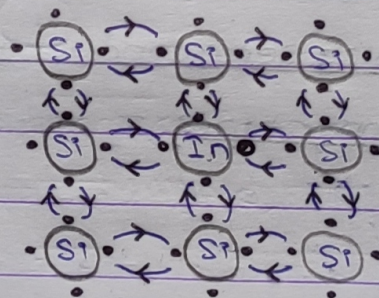 Si Si Si
Si In Si
Si Si Si